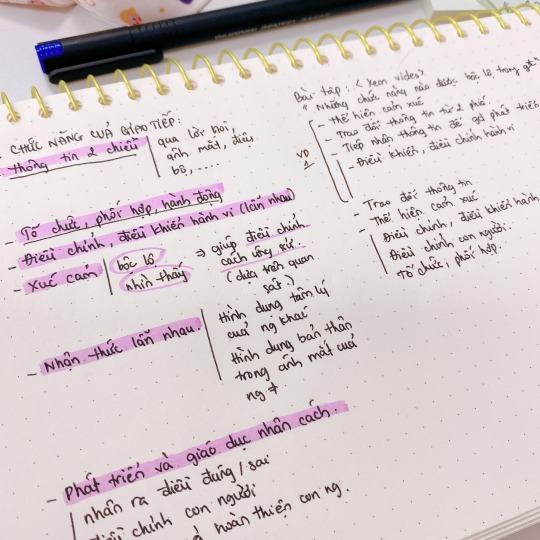 - CHỨC NĂNG CUẢ GIAO TIẾP:
thông tin 2 chiều
qua lời nói,
ánh mắt, điệu
bộ, ....
- Tổ chức, phối hợp, hành động
- Điều chỉnh, điều khiển hành vi (lẫn nhau)
- Xúc cảm
bộc lộ
nhìn thấy
⇒ giúp điều chỉnh
cách ứng xử.
(dựa trên quan
sát.)
- Nhận thức lẫn nhau.
Hình dung tâm lý
cuả ng khác
Hình dung bản thân
trong ánh mắt cuả
ng ≠
- Phát triển và giáo dục nhân cách.
nhận ra điều đúng / sai
điều chỉnh con người
hoàn thiện con ng.
Bài tập: < Xem video >
" Những chức năng nào được bộ lộ trong
VD
1
- Thể hiện cảm xúc
- Trao đổi thông tin từ 2 phía.
- Tiếp nhận thông tin để gd phát triển
- Điều khiển, điều chỉnh hành vi
- Trao đổi thông tin
- Thể hiện cảm xúc
Điều chỉnh, điều khiển hành
Điều chỉnh con người.
Tổ chức, phối hợp.